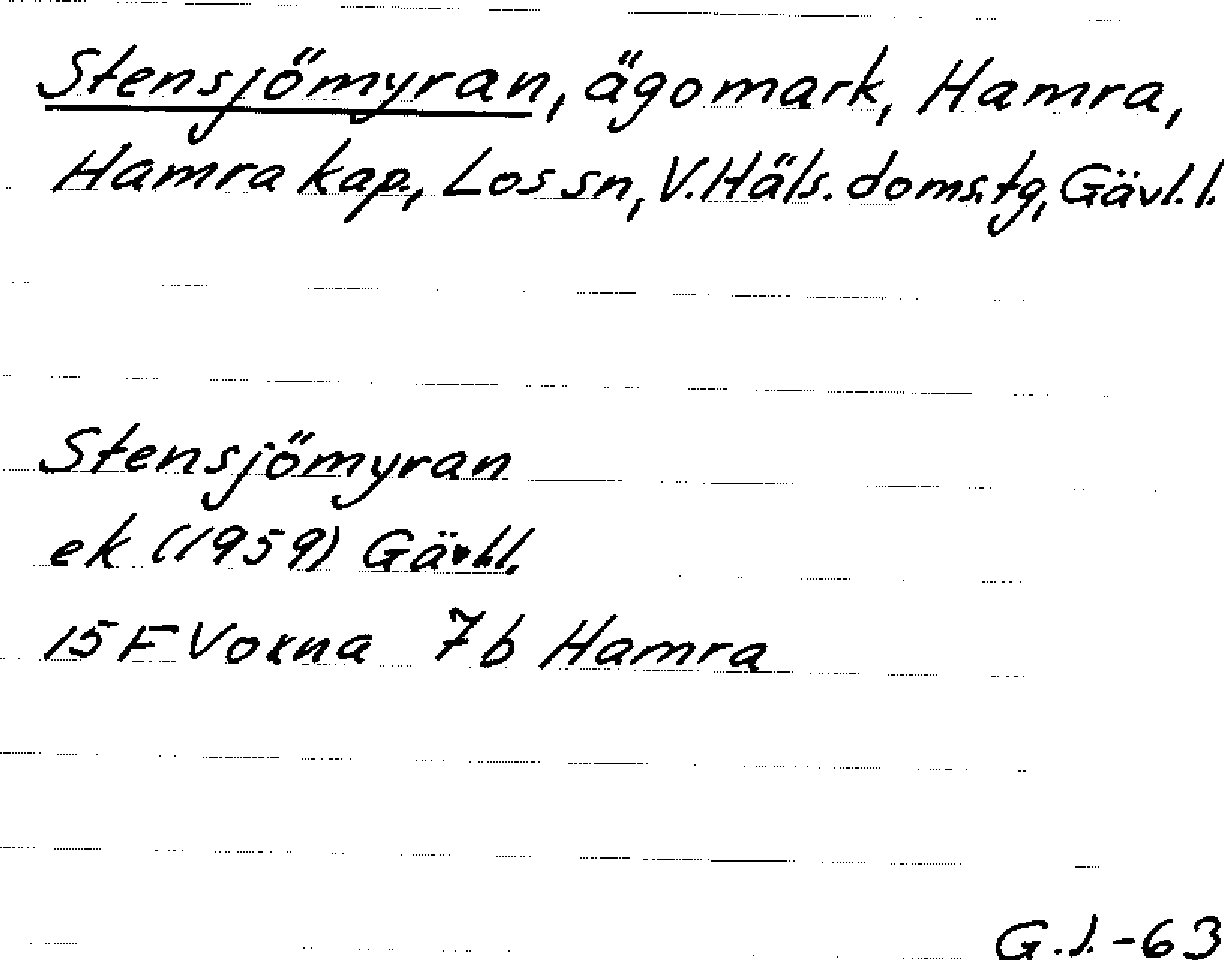 Stensjömyran, ägomark, Hamra,
Hamra kap., Los sn, V. Häls. doms.tg, Gävl. l.
Stensjömyran
ek (1959) Gävl.l.
15 F Voxna 7b Hamra
G.J.-63